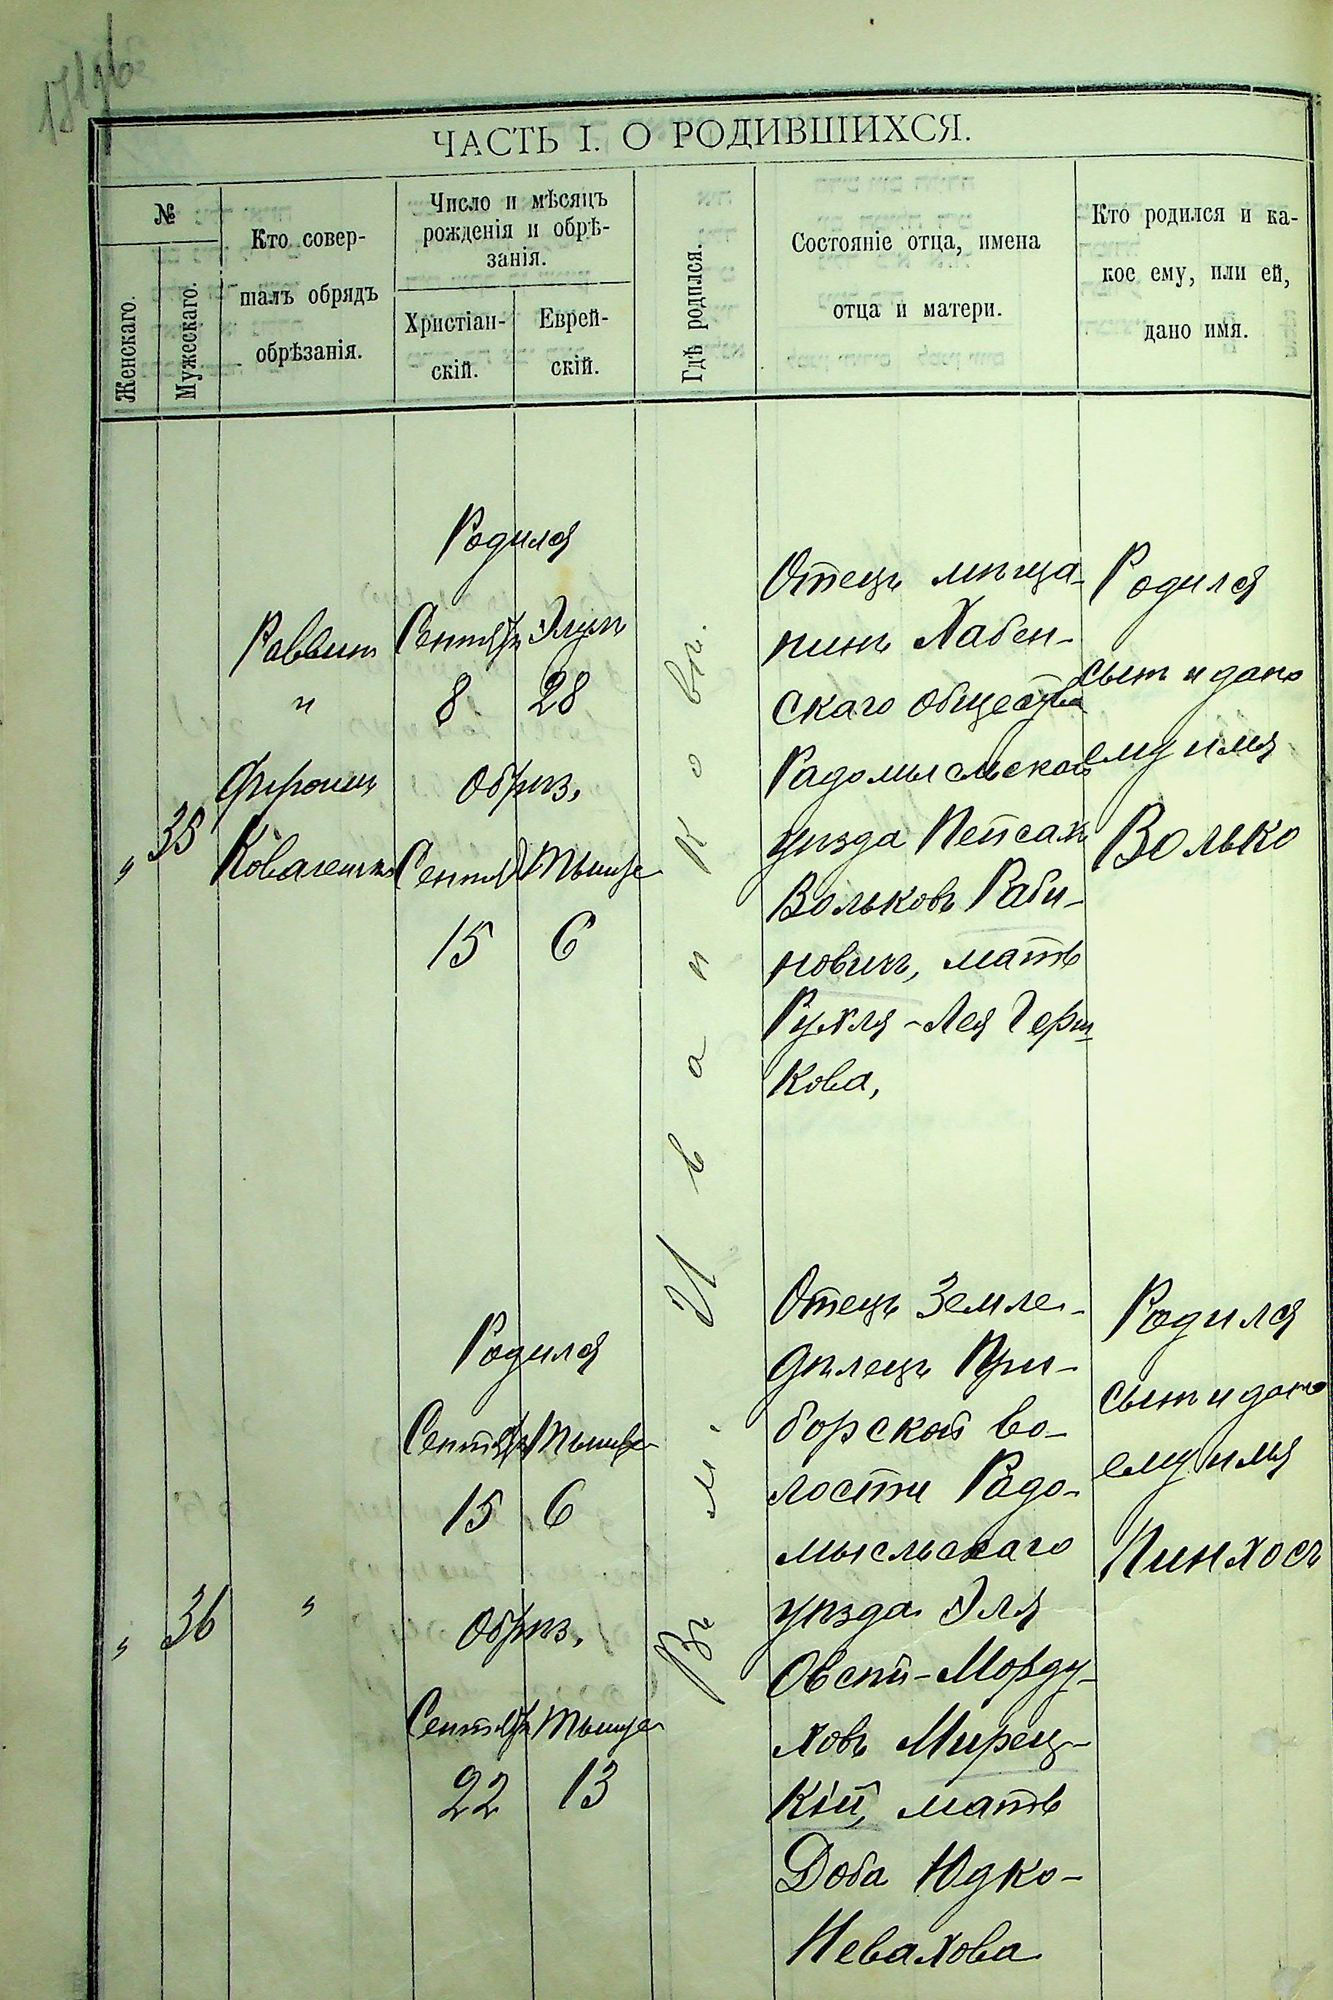 ЧАСТЬ I. О РОДИВШИХСЯ.
№
Женскаго.
Мужескаго.
Кто совер-
шалъ обрядъ
обрѣзанія.
Число и мѣсяцъ
рожденія и обрѣ-
занія.
Христіан-
скій.
Еврей-
скій.
Гдѣ родился.
Состояніе отца, имена
отца и матери.
Кто родился и ка-
кое ему, или ей,
дано имя.
"
35
Раввин
"
Родился
Сентяб Элул
8 28
Обрѣз.
Сентяб Тышре
15 6
Въ м. Иванковѣ.
Отецъ мѣща-
нинъ Хабен-
скаго общества
Радомысльскаго
уѣзда Пейсах
Вольковъ Раби-
новичъ, мать
Рухля-Лея Герш-
кова,
Родился
сынъ и дано
ему имя
Волько
"
36
"
Родился
Сентяб Тышре
15 6
Обрѣз.
Сентяб Тышре
22 13
Отецъ Земле-
дѣлецъ При-
борской во-
лости Радо-
мысльскаго
уѣзда Эля
Овсѣй-Морду-
ховъ Мирец-
кій, мать
Доба Юдко-
Невахова
Родился
сынъ и дано
ему имя
Пинхосъ